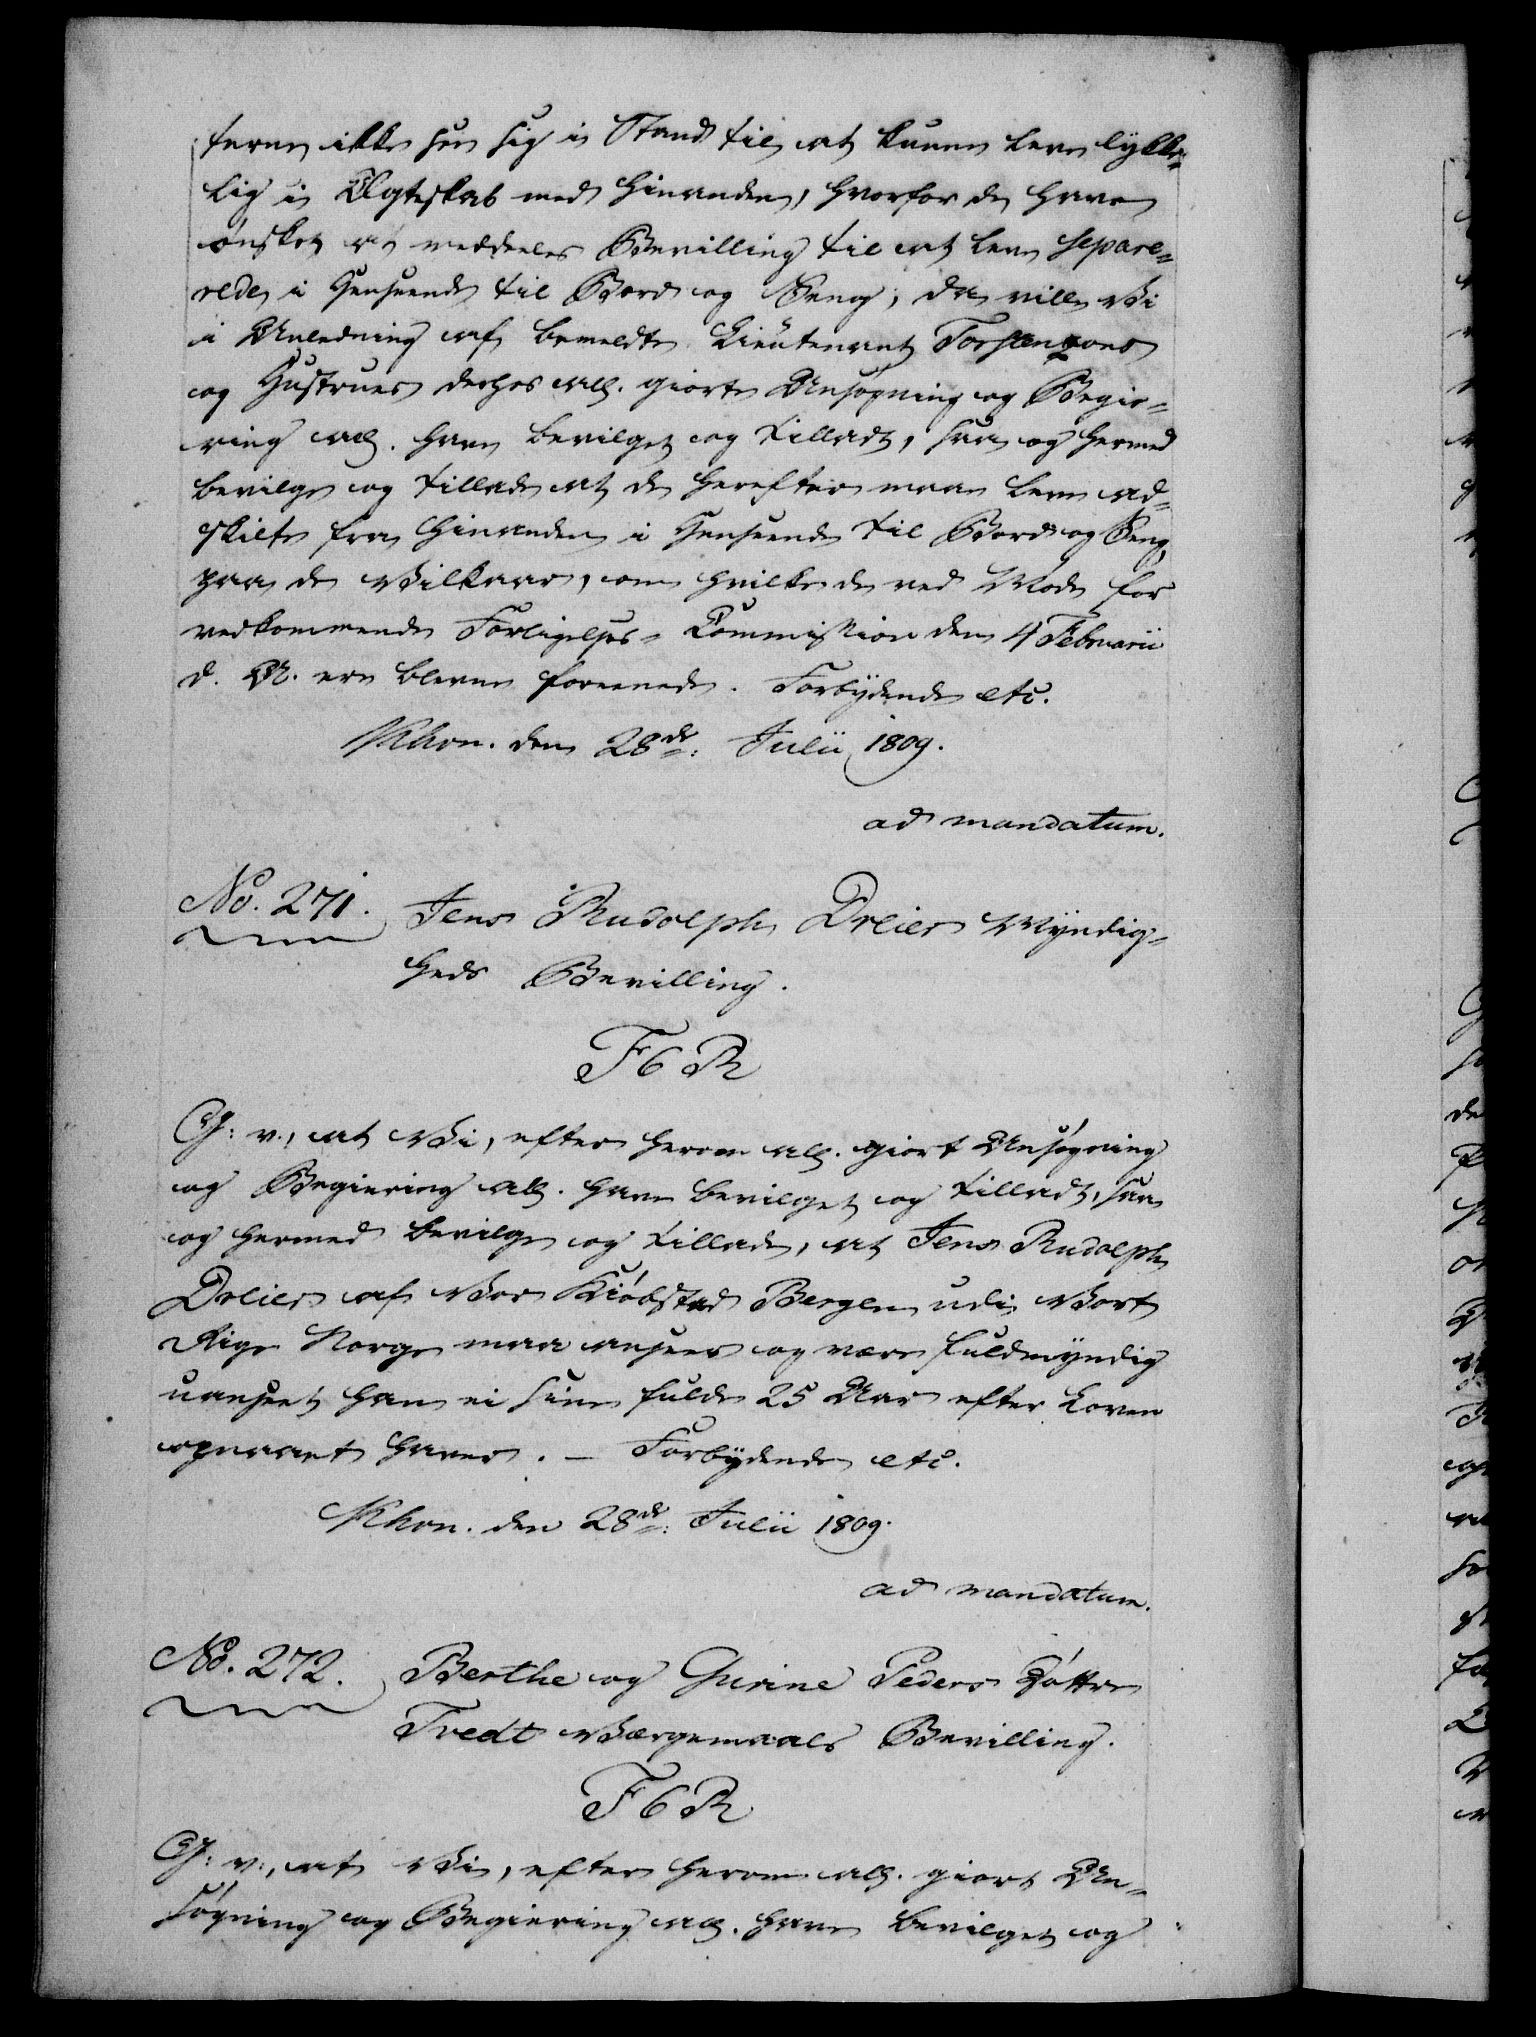 teren ikke see sig i Stand til at kunne leve lykke-
lig i Ægteskab med hinanden, hvorfor de have
ønsket at meddeeles Bevilling til at leve separe-
rede i Henseende til Bord og Seng; da ville Vi
i Anledning af bemeldte Lieutenant
og Hustrues derhos all. giorte Ansøgning og Begie-
ring all. have bevilget og tilladt, saa og hermed
bevilge og tillade at de herefter maae leve ad-
skilte fra hinanden i Henseende til Bord og Seng,
paa de Vilkaar, om hvilke de ved Møde for
vedkommende Forligelses-Commission den 4 Februarii
d. A. ere blevne foreenede. Forbydende etc.
Khvn. den 28de: Julii 1809.
ad mandatum.
No. 271. Jens Rudolph Dreier Myndig-
heds Bevilling.
F6R
G: v., at Vi, efter herom all. giort Ansøgning
og Begiering all. have bevilget og tilladt, saa
og hermed bevilge og tillade, at Jens Rudolph
Dreier af Vor Kiøbstad Bergen udi Vort
Rige Norge maa ansees og være fuldmyndig
uanseet han ei sine fulde 25 Aar efter Loven
opnaaet haver. – Forbydende etc.
Khvn. den 28de: Julii 1809.
ad mandatum.
No. 272. Berthe og Gurine Peders Døttre
Tvedt Værgemaals Bevilling.
F6R
G: v., at Vi, efter herom all. giort An-
søgning og Begiering all. have bevilget og